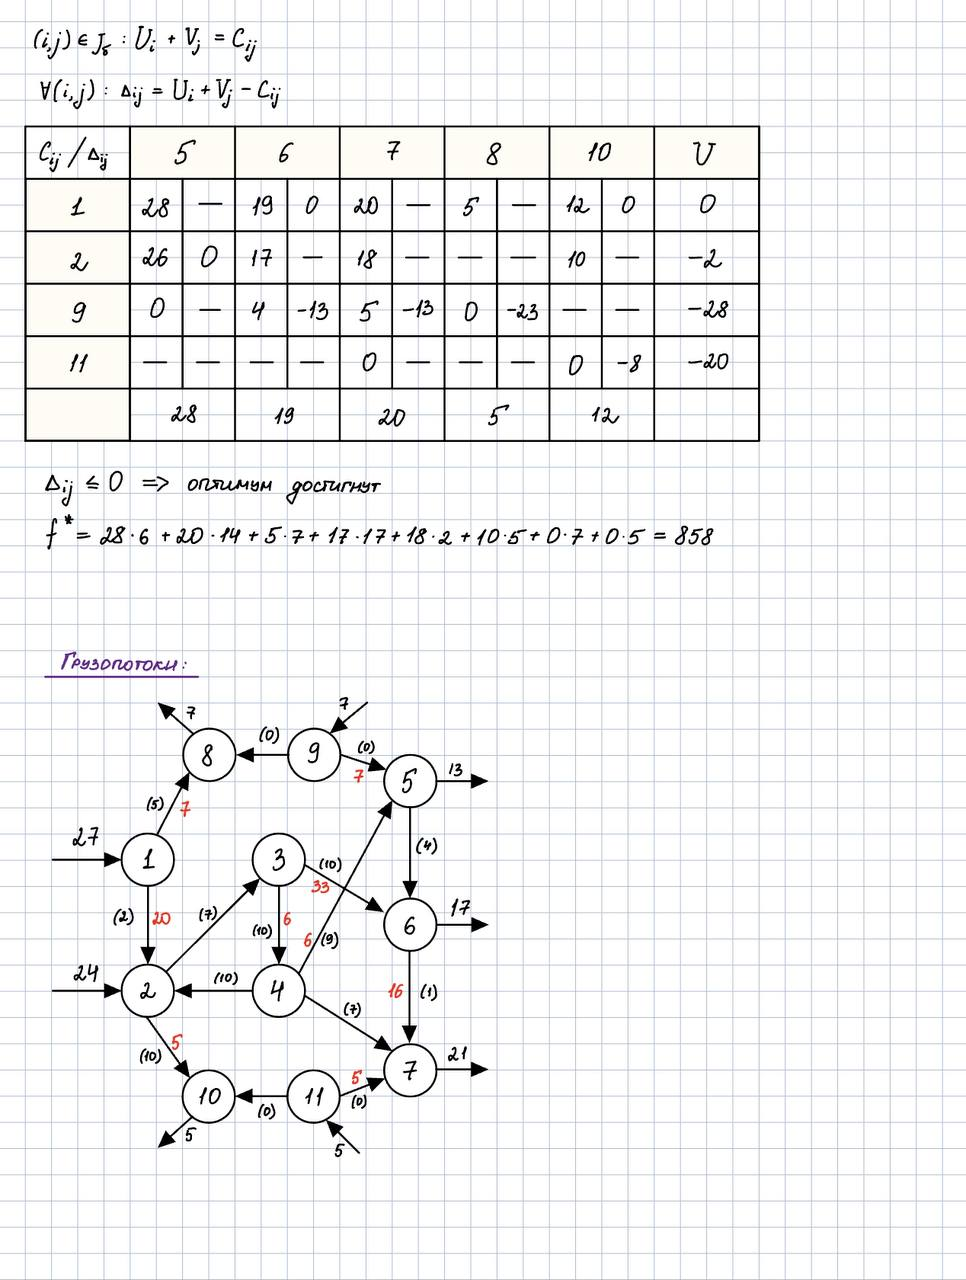 (i,j) ∈ J_б : U_i + V_j = C_ij
∀(i,j) : Δ_ij = U_i + V_j − C_ij
C_ij / Δ_ij 5 6 7 8 10 U
1 28 — 19 0 20 — 5 — 12 0 0
2 26 0 17 — 18 — — — 10 — −2
9 0 — 4 −13 5 −13 0 −23 — — −28
11 — — — — 0 — — — 0 −8 −20
28 19 20 5 12
Δ_ij ≤ 0 => оптимум достигнут
f* = 28·6 + 20·14 + 5·7 + 17·17 + 18·2 + 10·5 + 0·7 + 0·5 = 858
Грузопотоки:
7 7
8 (0) 9 (0)
7 5 13
(5) 7
27 1 3 (10) (4)
33
(2) 20 (7) (10) 6 6 (9) 6 17
24 2 (10) 4 (7) 16 (1)
(10) 5 7 21
10 (0) 11 5 (0)
5 5